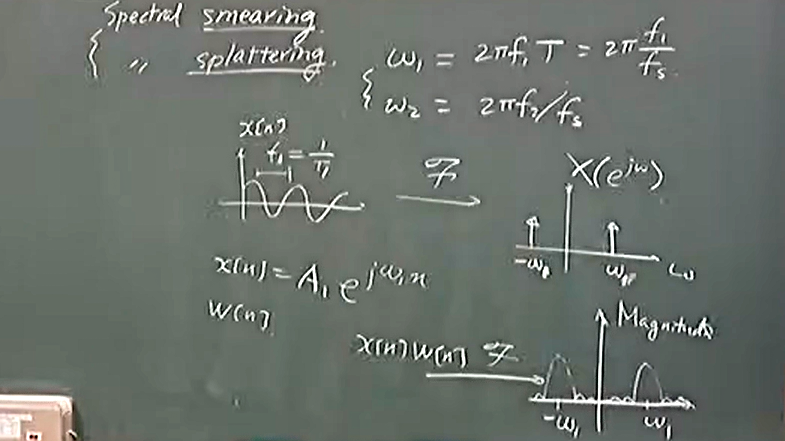 Spectral smearing.
{ 〃 splattering.
{ ω₁ = 2πf₁T = 2π f₁/fₛ
ω₂ = 2πf₂/fₛ
x[n]
f₁ = 1/T₁
F
X(e^{jω})
ω
x[n] = A₁ e^{jω₁n}
W[n]
Magnitude
x[n]W[n] F
-ω₁ ω₁